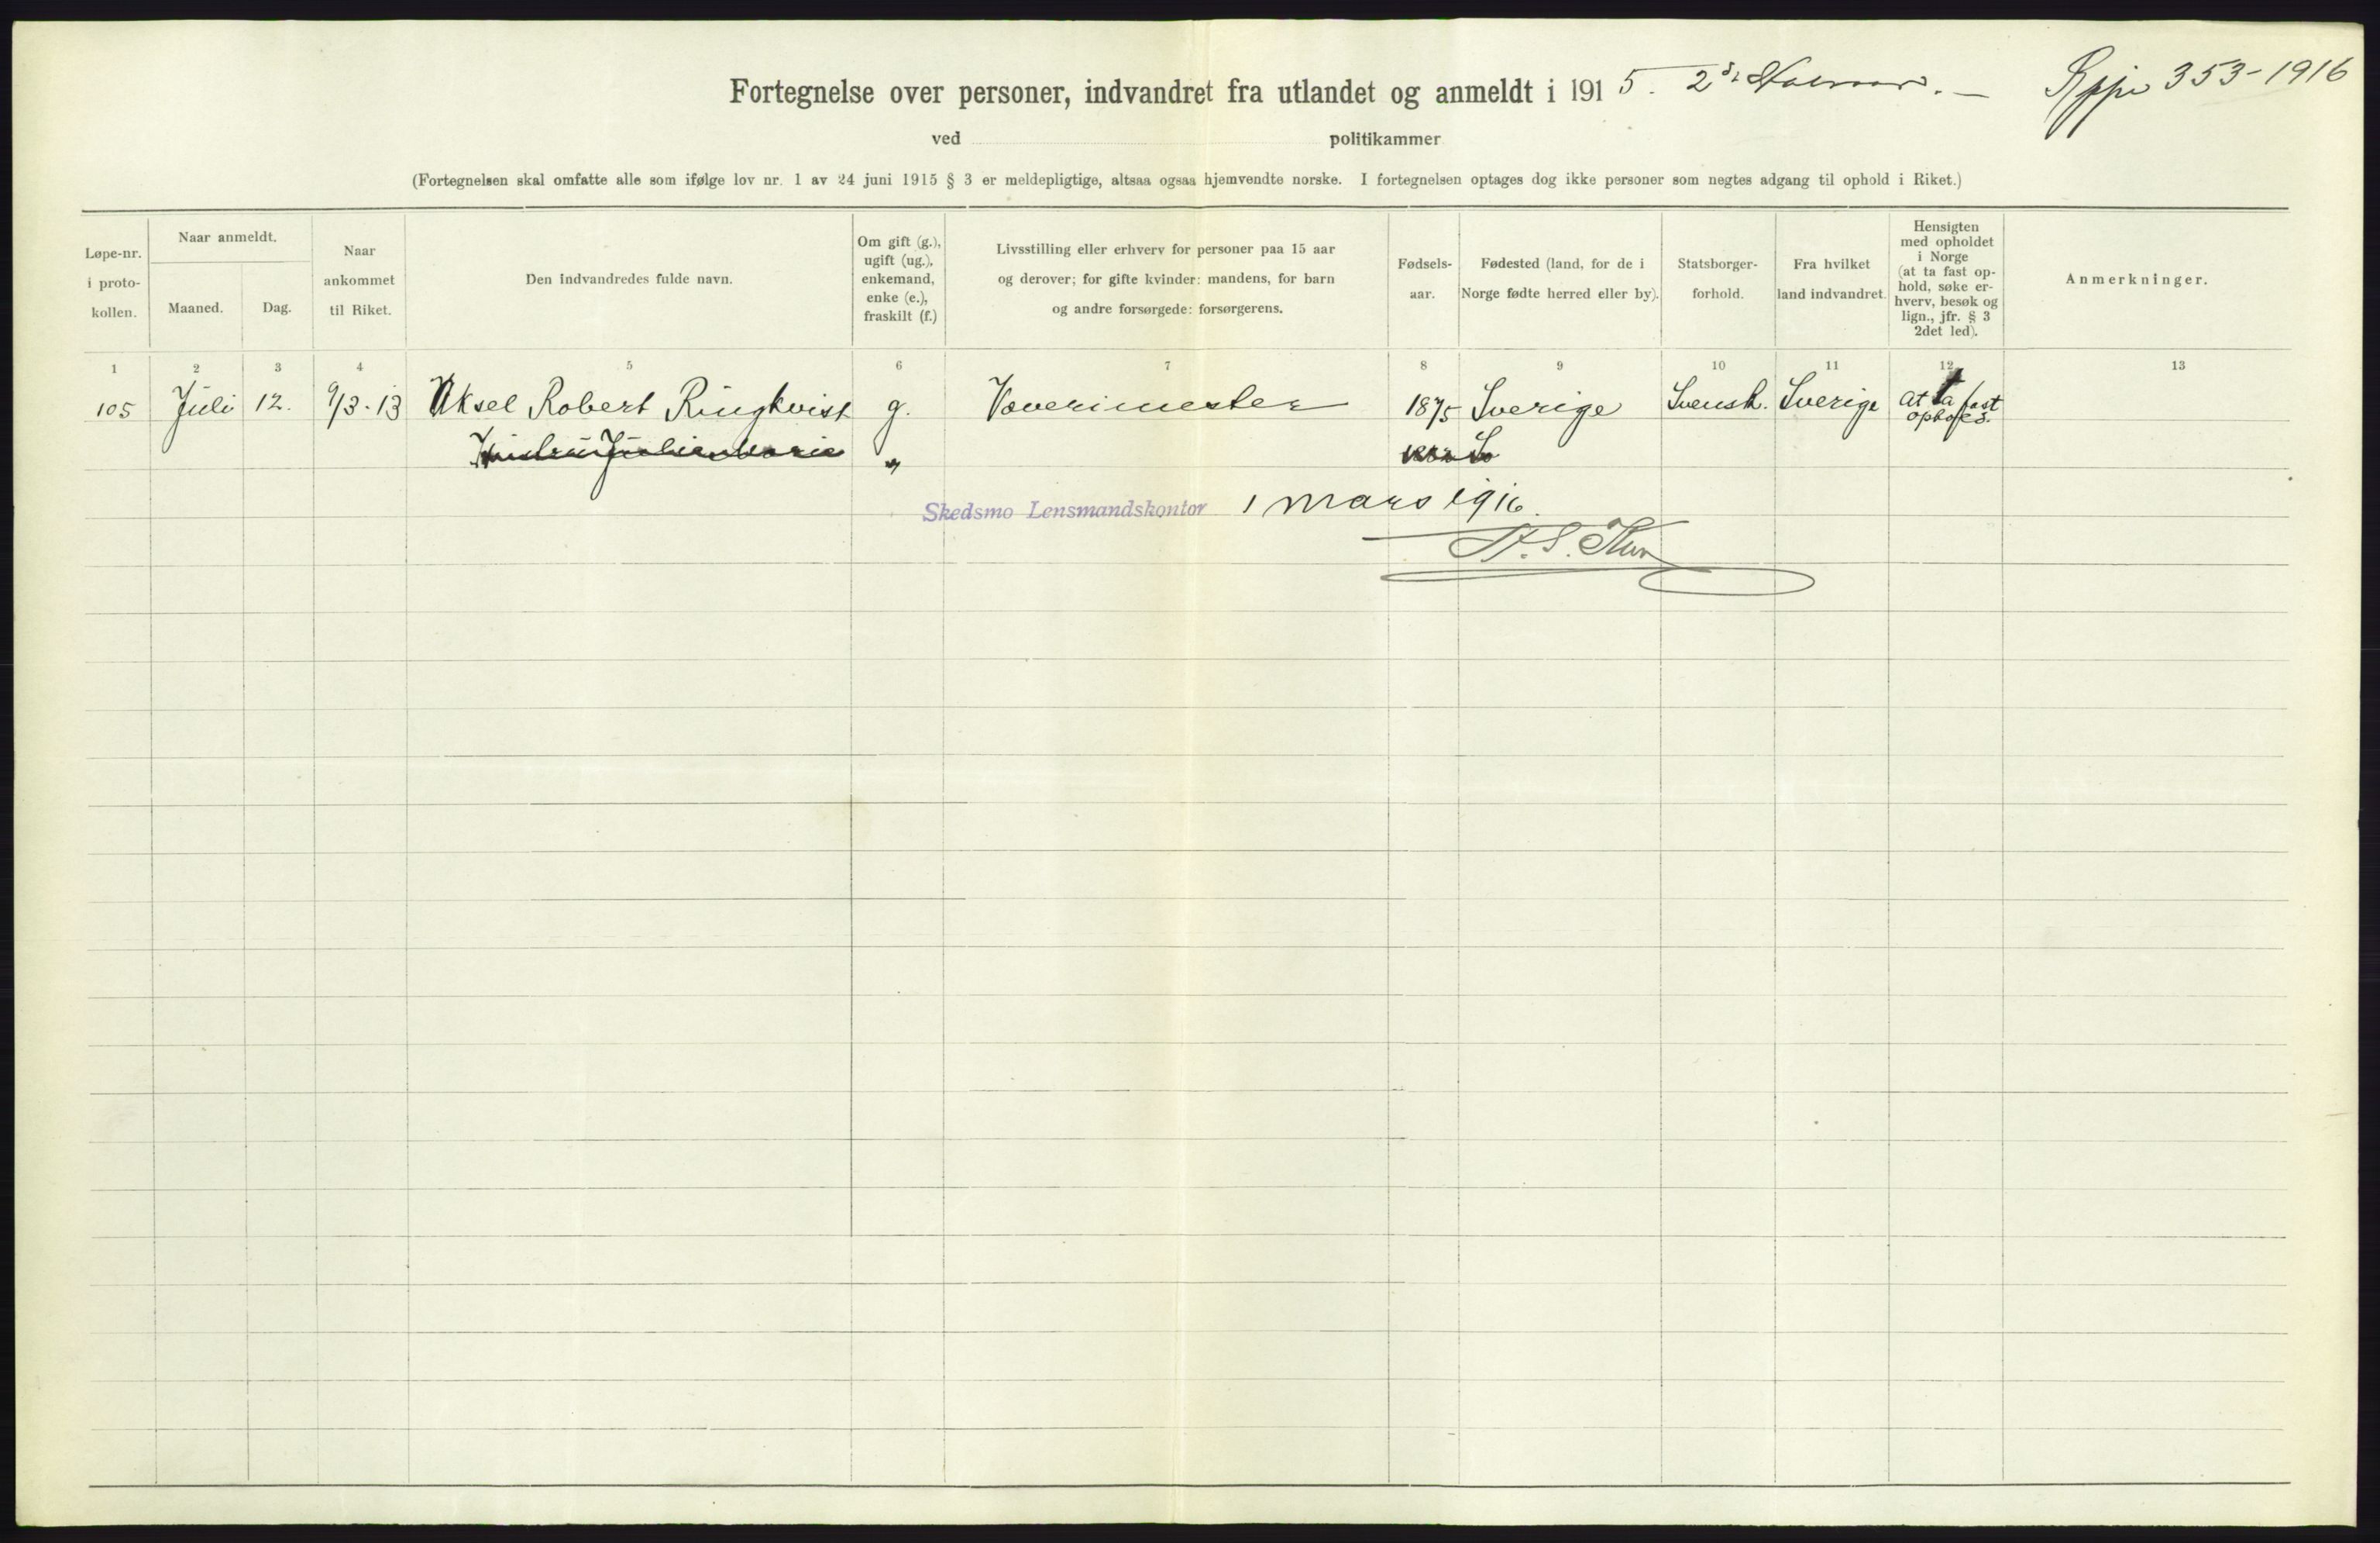 Fortegnelse over personer, indvandret fra utlandet og anmeldt i 1915. 2det Halvaar. —
353-1916
ved politikammer
(Fortegnelsen skal omfatte alle som ifølge lov nr. 1 av 24 juni 1915 § 3 er meldepligtige, altsaa ogsaa hjemvendte norske. I fortegnelsen optages dog ikke personer som negtes adgang til ophold i Riket.)
Løpe-nr.
i proto-
kollen.
Naar anmeldt.
Maaned.
Dag.
Naar
ankommet
til Riket.
Den indvandredes fulde navn.
Om gift (g.),
ugift (ug.),
enkemand,
enke (e.),
fraskilt (f.)
Livsstilling eller erhverv for personer paa 15 aar
og derover; for gifte kvinder: mandens, for barn
og andre forsørgede: forsørgerens.
Fødsels-
aar.
Fødested (land, for de i
Norge fødte herred eller by).
Statsborger-
forhold.
Fra hvilket
land indvandret.
Hensigten
med opholdet
i Norge
(at ta fast op-
hold, søke er-
hverv, besøk og
lign., jfr. § 3
2det led).
Anmerkninger.
1 2 3 4 5 6 7 8 9 10 11 12 13
105 Juli 12. 9/3-13 Aksel Robert Ringkvist g. Væverimester 1875 Sverige Svensk. Sverige At ta fast
Marie "
Skedsmo Lensmandskontor 1 mars 1916.